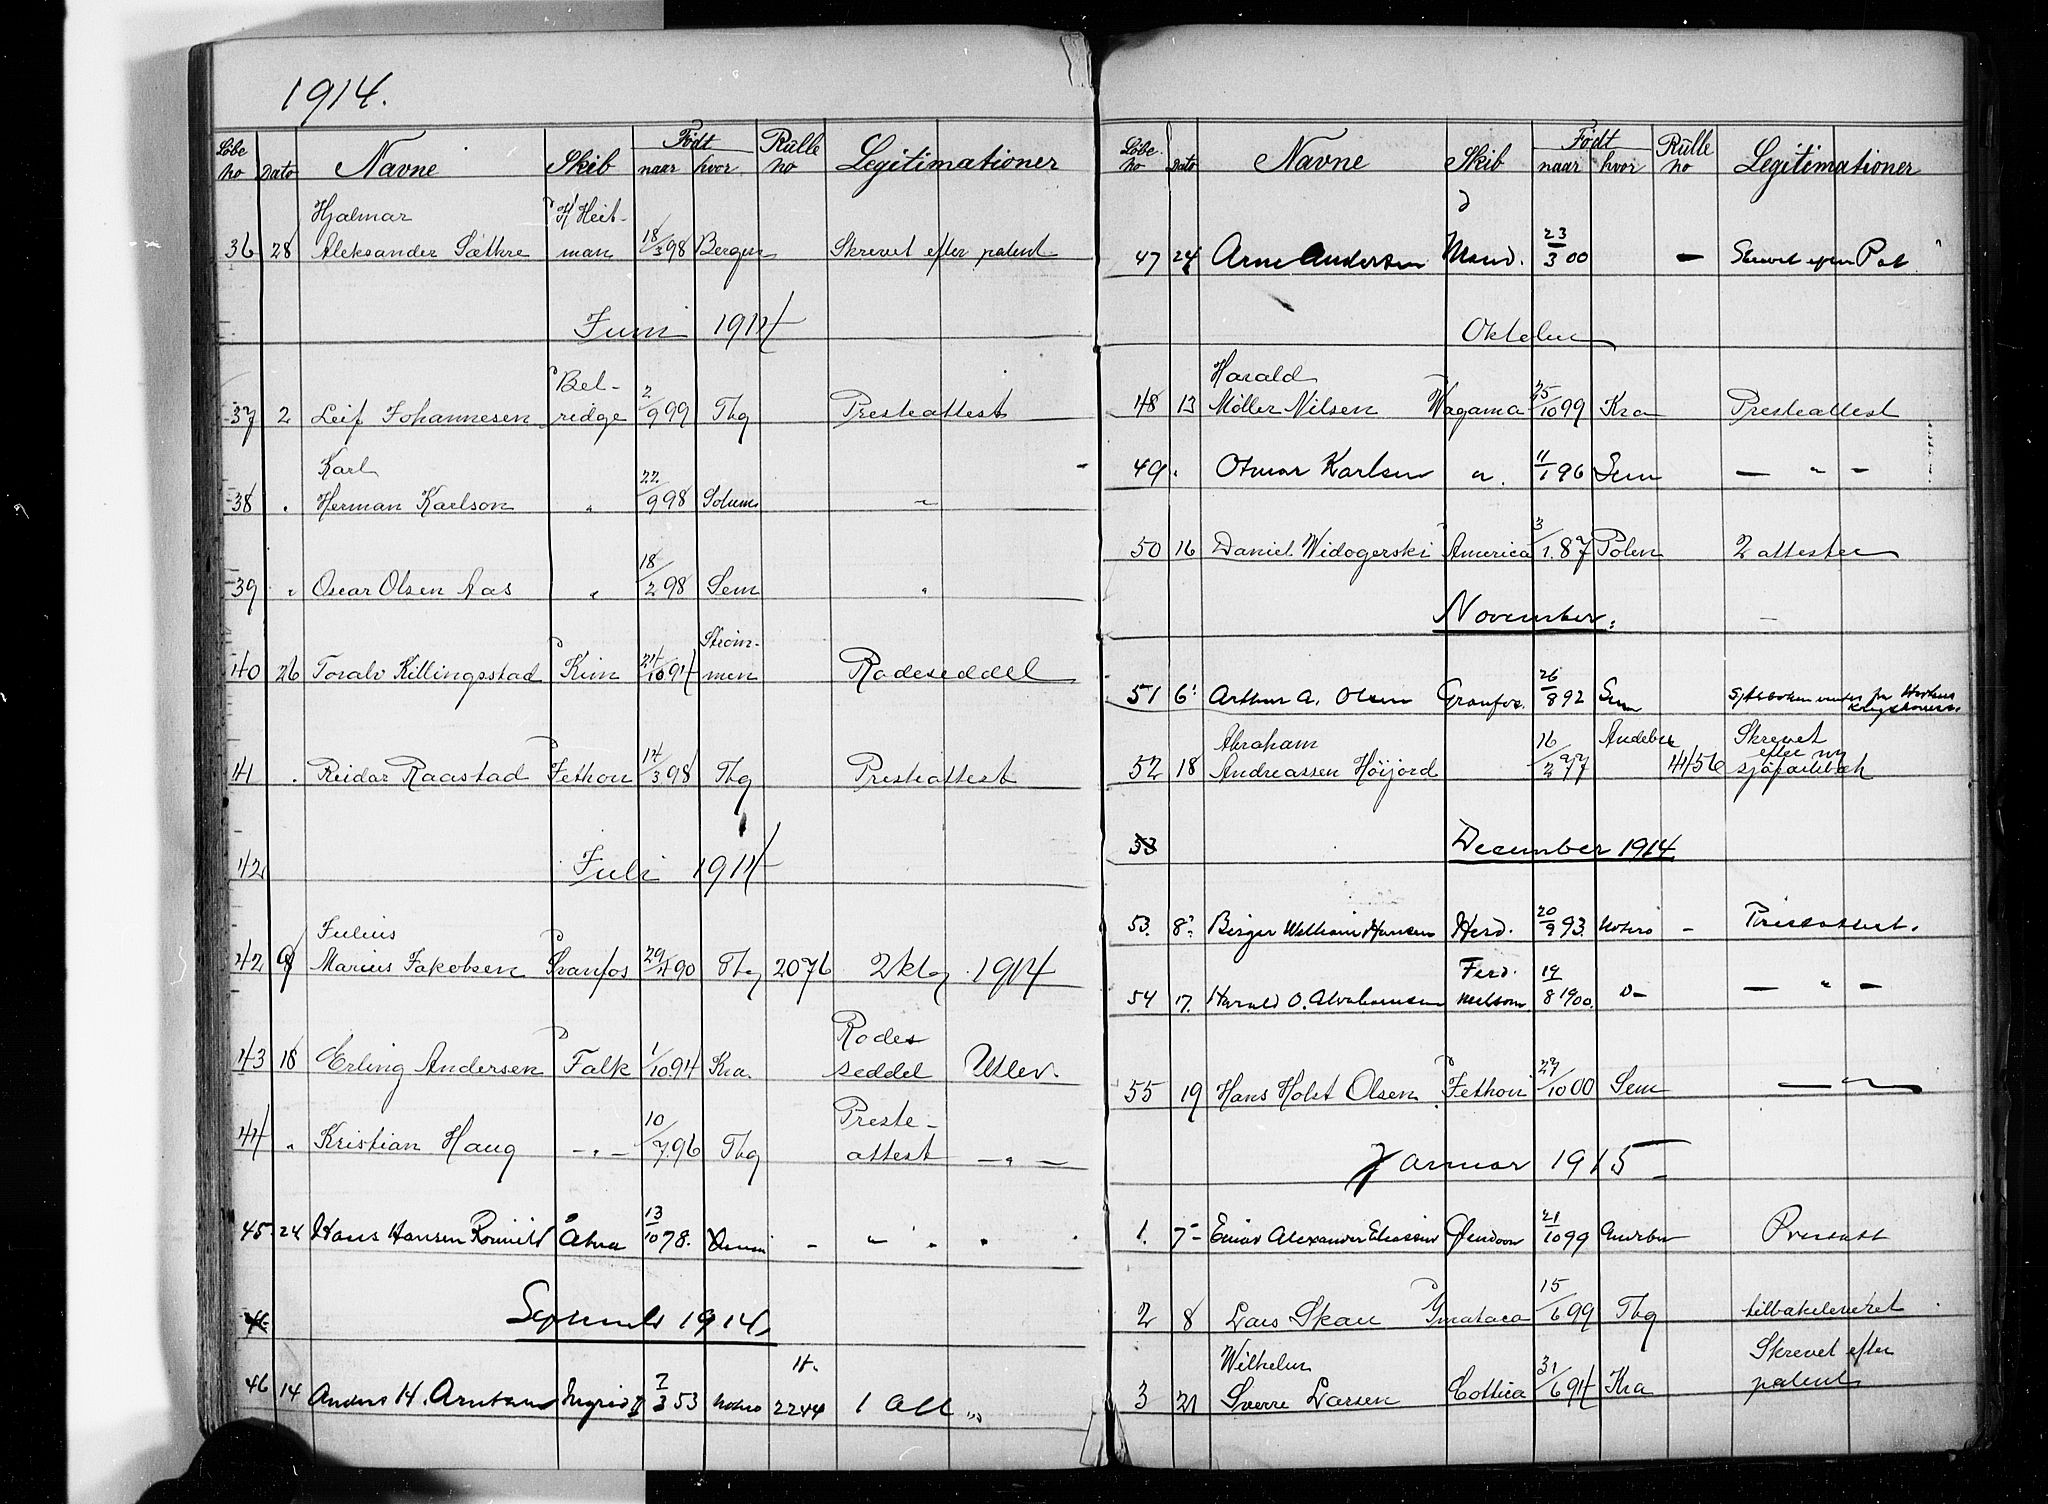 1914.
Løbe no Dato Navne Skib Født naar hvor Rulle no Legitimationer
Hjalmar Heit-
36 28 Aleksander Sæthre man 18/3 98 Bergen Skrevet efter patent
Juni 1914
Bel-
37 2 Leif Johannesen ridge 2/9 99 Tbg Presteattest
Karl
38 " Herman Karlson " 22/9 98 Solum "
39 " Oscar Olsen Aas " 18/2 98 Sem "
Strøm-
40 26 Toralv Killingsstad Kim 24/10 94 men Rodeseddel
41 " Reidar Raastad Fethon 14/3 98 Tbg Presteattest
42 Juli 1914
Julius
42 9 Marius Jakobsen Granfos 29/4 90 Tbg 2076 2 kl 1914
Rodes
43 18 Erling Andersen Falk 1/10 94 Kra. seddel Utlev.
Preste-
44 " Kristian Haug - " - 10/7 96 Tbg attest - " -
45 24 Hans Hansen 13/10 78. - " " "
46 September 1914
46 14 Anders H. Ingrid II 7/3 53 Nøtterø 2244 1 Att
Løbe no Dato Navne Skib Født naar hvor Rulle no Legitimationer
47 24 Arne Andersen 23/3 00 - Skrevet efter Pat
Oktober
Harald
48 13 Møller Nilsen Wagama 25/10 99 Kra Presteattest
49 " Otmar Karlsen " 11/1 96 Sem - " -
50 16 Daniel Widogerski America 3/1 87 Polen 2 attester
November.
51 6 Arthur A. Olsen Granfos. 26/8 92 Sem
Abraham Andebu Skrevet
52 18 Andreassen Høijord 16/2 77 4456 efter ny
sjøfartsbok
53 December 1914
53. 8 Birger Wilhelm Hansen Herd. 20/9 93. Presteattest.
Ferd.
54 17. Harald O. Abrahamsen Melsom 19/8 1900. D- - " -
55 19 Hans Holst Olsen Fethon 27/10 00 Sem - " -
Januar 1915
1. 7 Einar Alexander Eliassen Glendoon 21/10 99 Presteatt
2 8 Lars Skau 15/6 99 Tbg tilbakeleveret
Wilhelm Skrevet efter
3 21 Sverre Larsen Cottica 31/6 94 Kra patent